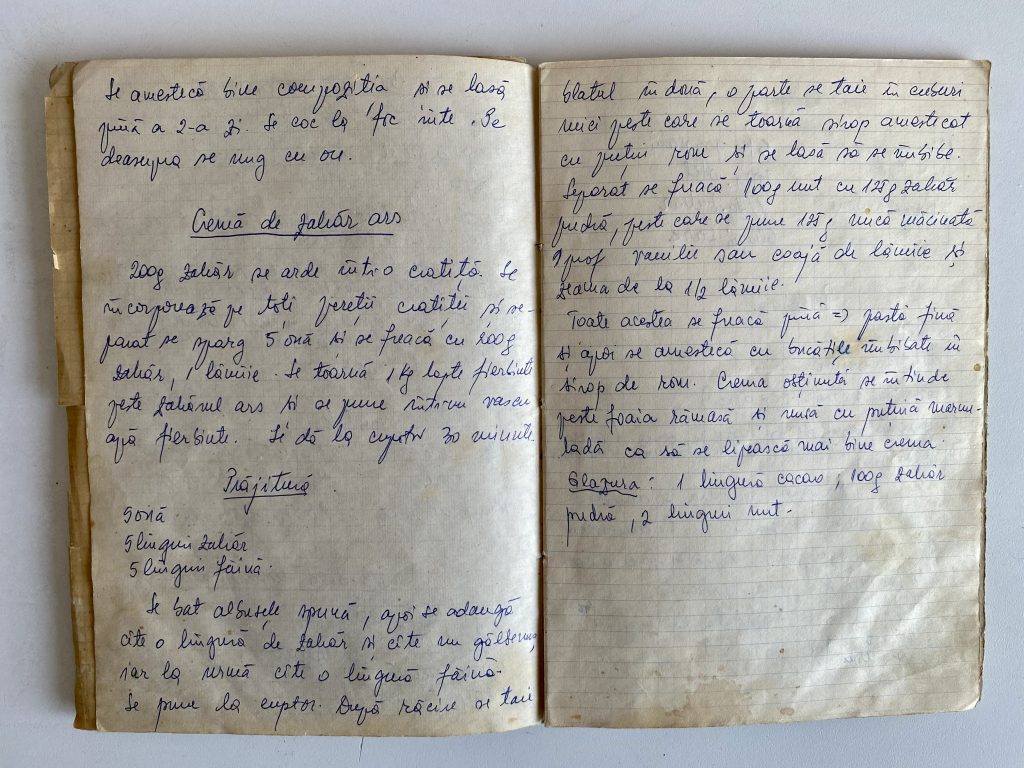 Se amestecă bine compoziția și se lasă
pînă a 2-a zi. Se coc la foc iute. Pe
deasupra se ung cu ou.
Cremă de zahăr ars
200g zahăr se arde într-o cratiță. Se
încorporează pe toți pereții cratiței și se-
parat se sparg 5 ouă și se freacă cu 200g
zahăr, 1 lămîie. Se toarnă 1 kg lapte fierbinte
peste zahărul ars și se pune într-un vas cu
apă fierbinte. Se dă la cuptor 30 minute.
Prăjitură
5 ouă
5 linguri zahăr
5 linguri făină.
Se bat albușele spumă, apoi se adaugă
cîte o lingură de zahăr și cîte un gălbenuș,
iar la urmă cîte o lingură făină.
Se pune la cuptor. După răcire se taie
blatul în două, o parte se taie în cuburi
mici peste care se toarnă sirop amestecat
cu puțin rom și se lasă să se îmbibe.
Separat se freacă 100g unt cu 125g zahăr
pudră, peste care se pune 125g nucă măcinată
1 praf vanilie sau coajă de lămîie și
zeama de la 1/2 lămîie.
Toate acestea se freacă pînă => pastă fină
și apoi se amestecă cu bucățile îmbibate în
sirop de rom. Crema obținută se întinde
peste foaia rămasă și unsă cu puțină marme-
ladă ca să se lipească mai bine crema.
Glazura: 1 lingură cacao, 100g zahăr
pudră, 2 linguri unt.